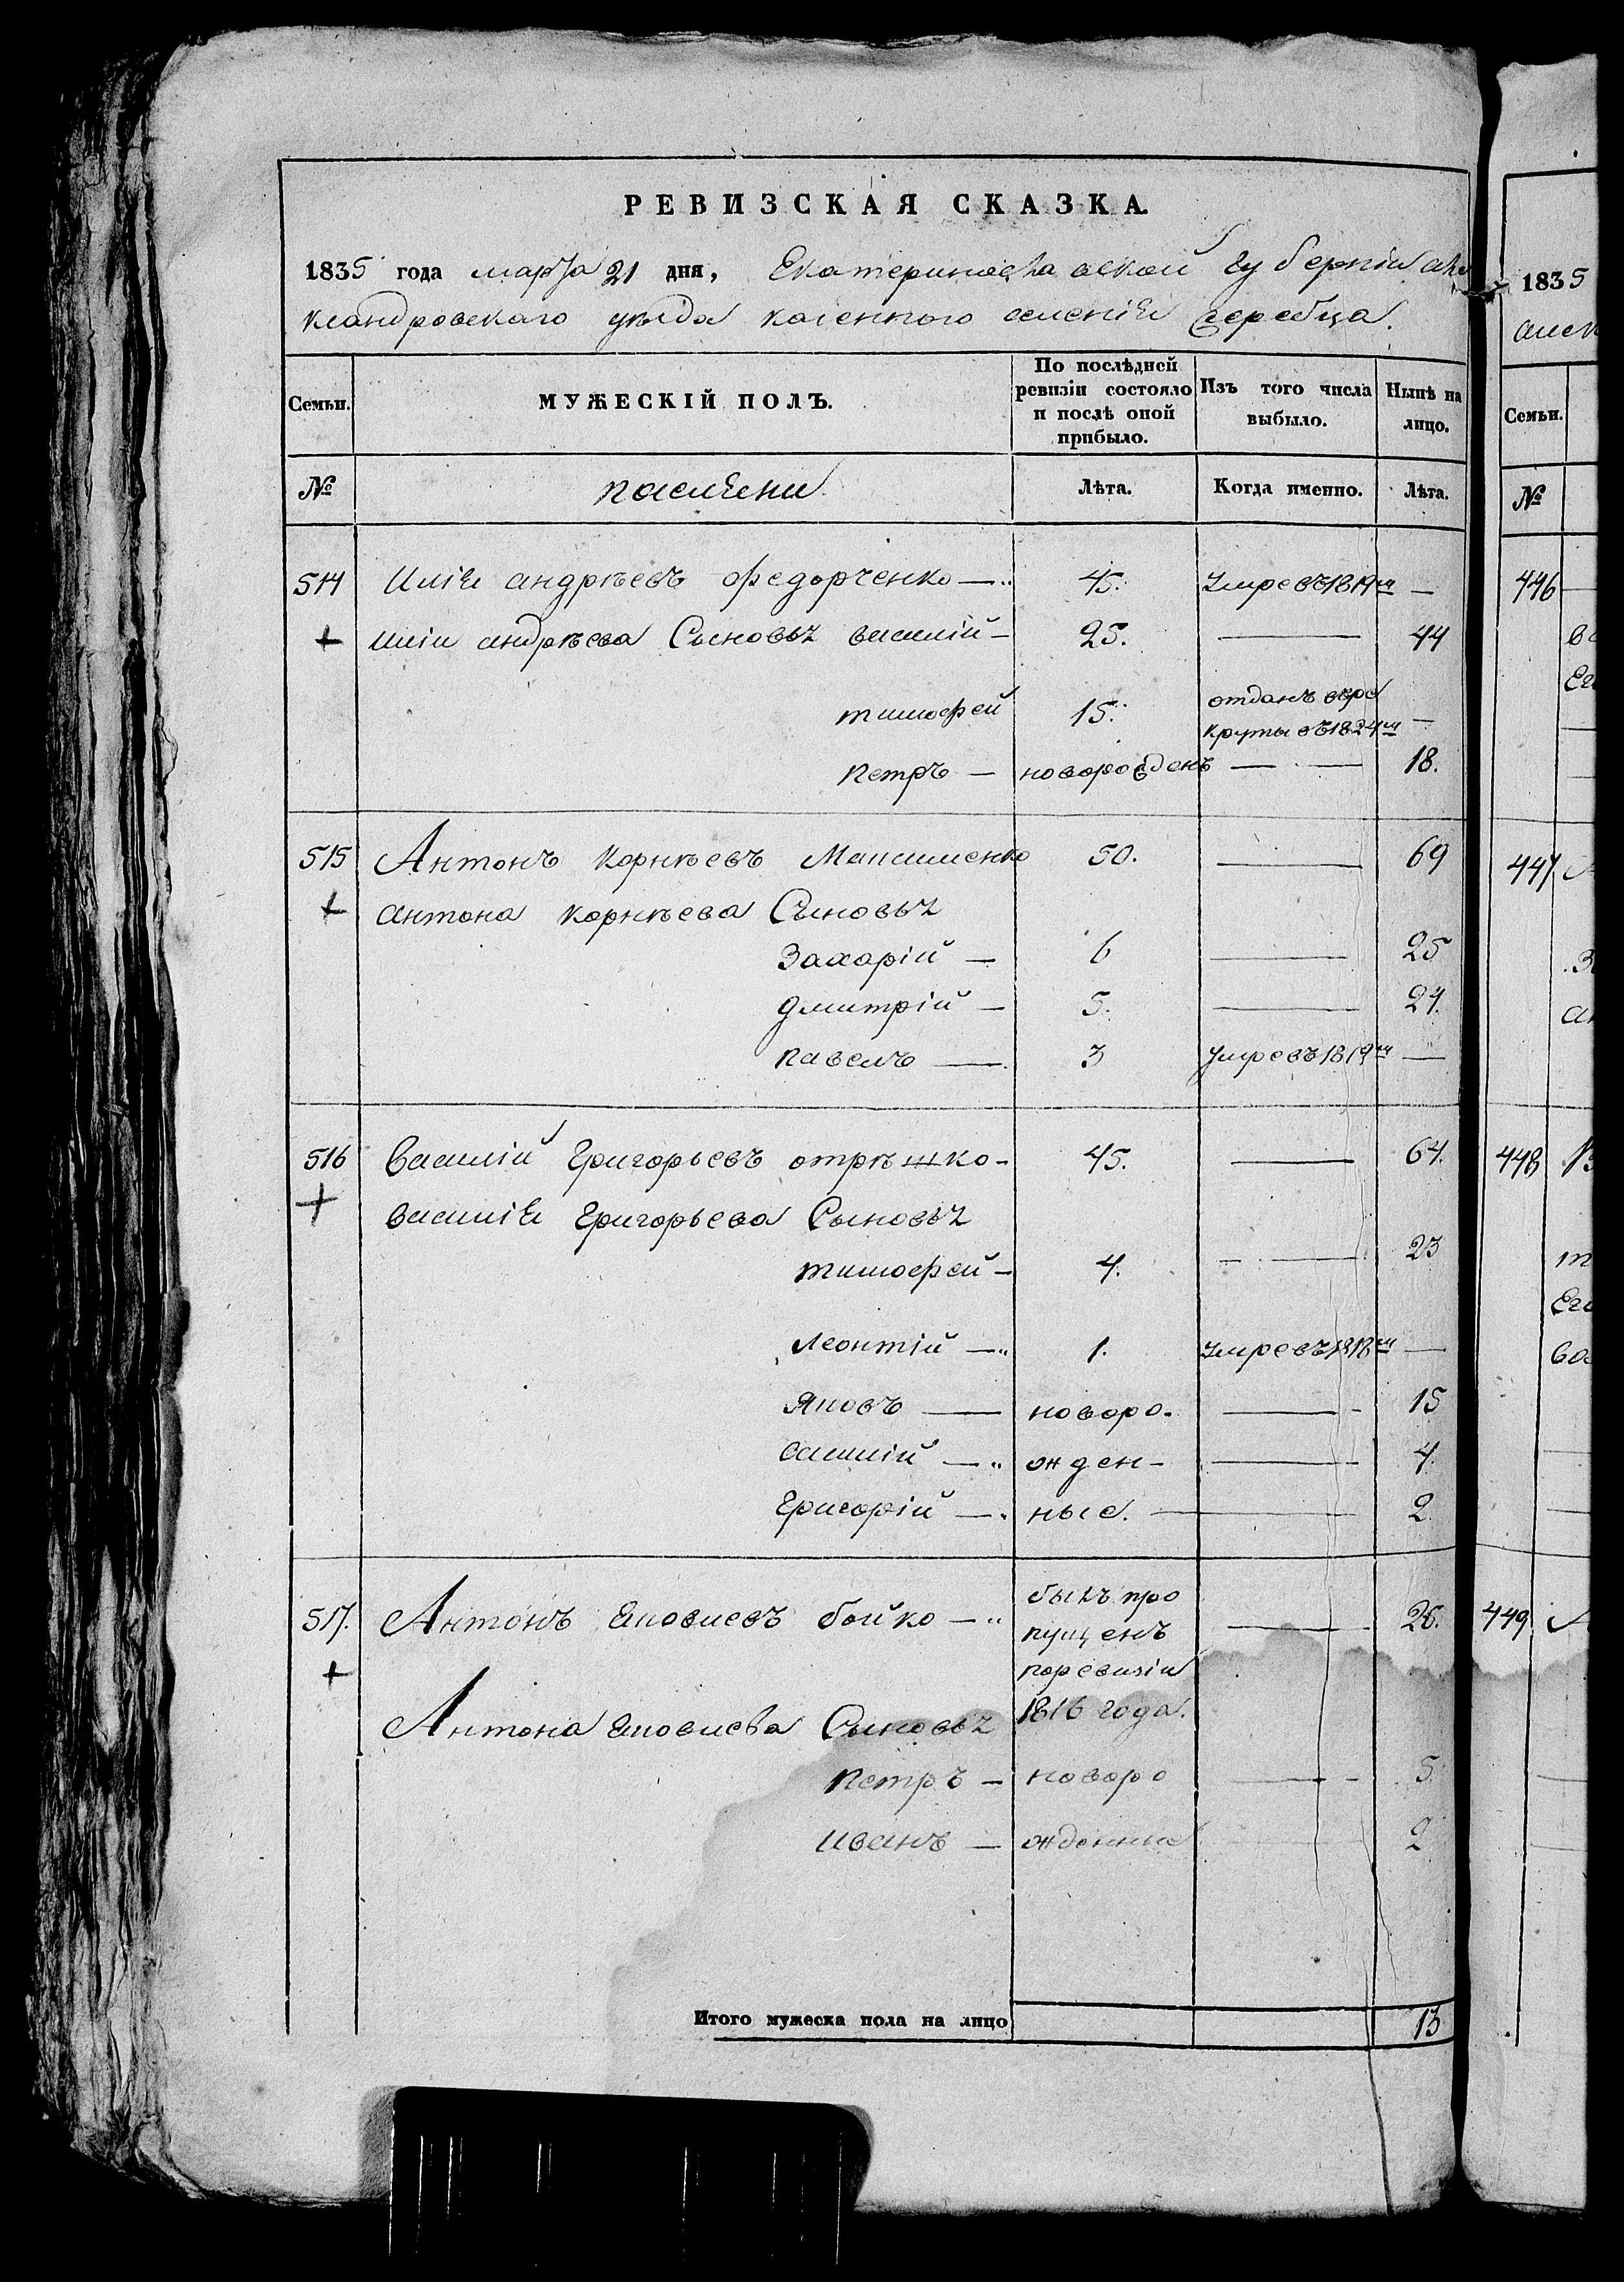 РЕВИЗСКАЯ СКАЗКА.
1835 года марта 21 дня, Екатеринославской губерніи але
ксандровскаго уезда казенного селенія жеребца.
Семьи. МУЖЕСКІЙ ПОЛЪ. По послѣдней ревизіи состояло и послѣ оной прибыло. Изъ того числа выбыло. Нынѣ на лицо.
№ поселяни Лѣта. Когда именно. Лѣта.
514 Илія андрѣевъ федорченко — 45. Умре въ 1819м —
+ иліи андрѣева Сыновья василій — 25. — 44
тимофей 15. отданъ в ре
круты въ 1824м —
петръ — новорожденъ — 18.
515 Антонъ корнѣевъ Максименко 50. — 69
+ антона корнѣева Сыновья
Захарій — 6 — 25
дмитрій — 5. — 24.
павелъ — 3 умре въ 1819м —
516 василій Григорьевъ отрѣшко — 45. — 64.
+ василія Григорьева Сыновья
тимофей — 4. — 23
Леонтій — 1. умре въ 1818м —
Яковъ — новоро. — 15
— жден- — 4.
Григорій — ные. — 2
517. Антонъ бойко — былъ про — 26.
пущенъ
+ поревизіи
Антона Сыновья 1816 года.
петръ — новоро — 5.
иванъ — жденные — 2
Итого мужеска пола на лицо 13
1835
алек
Семьи.
№
446
ва
Его
447 А
За
ан
448 В
ти
Его
ва
449 А